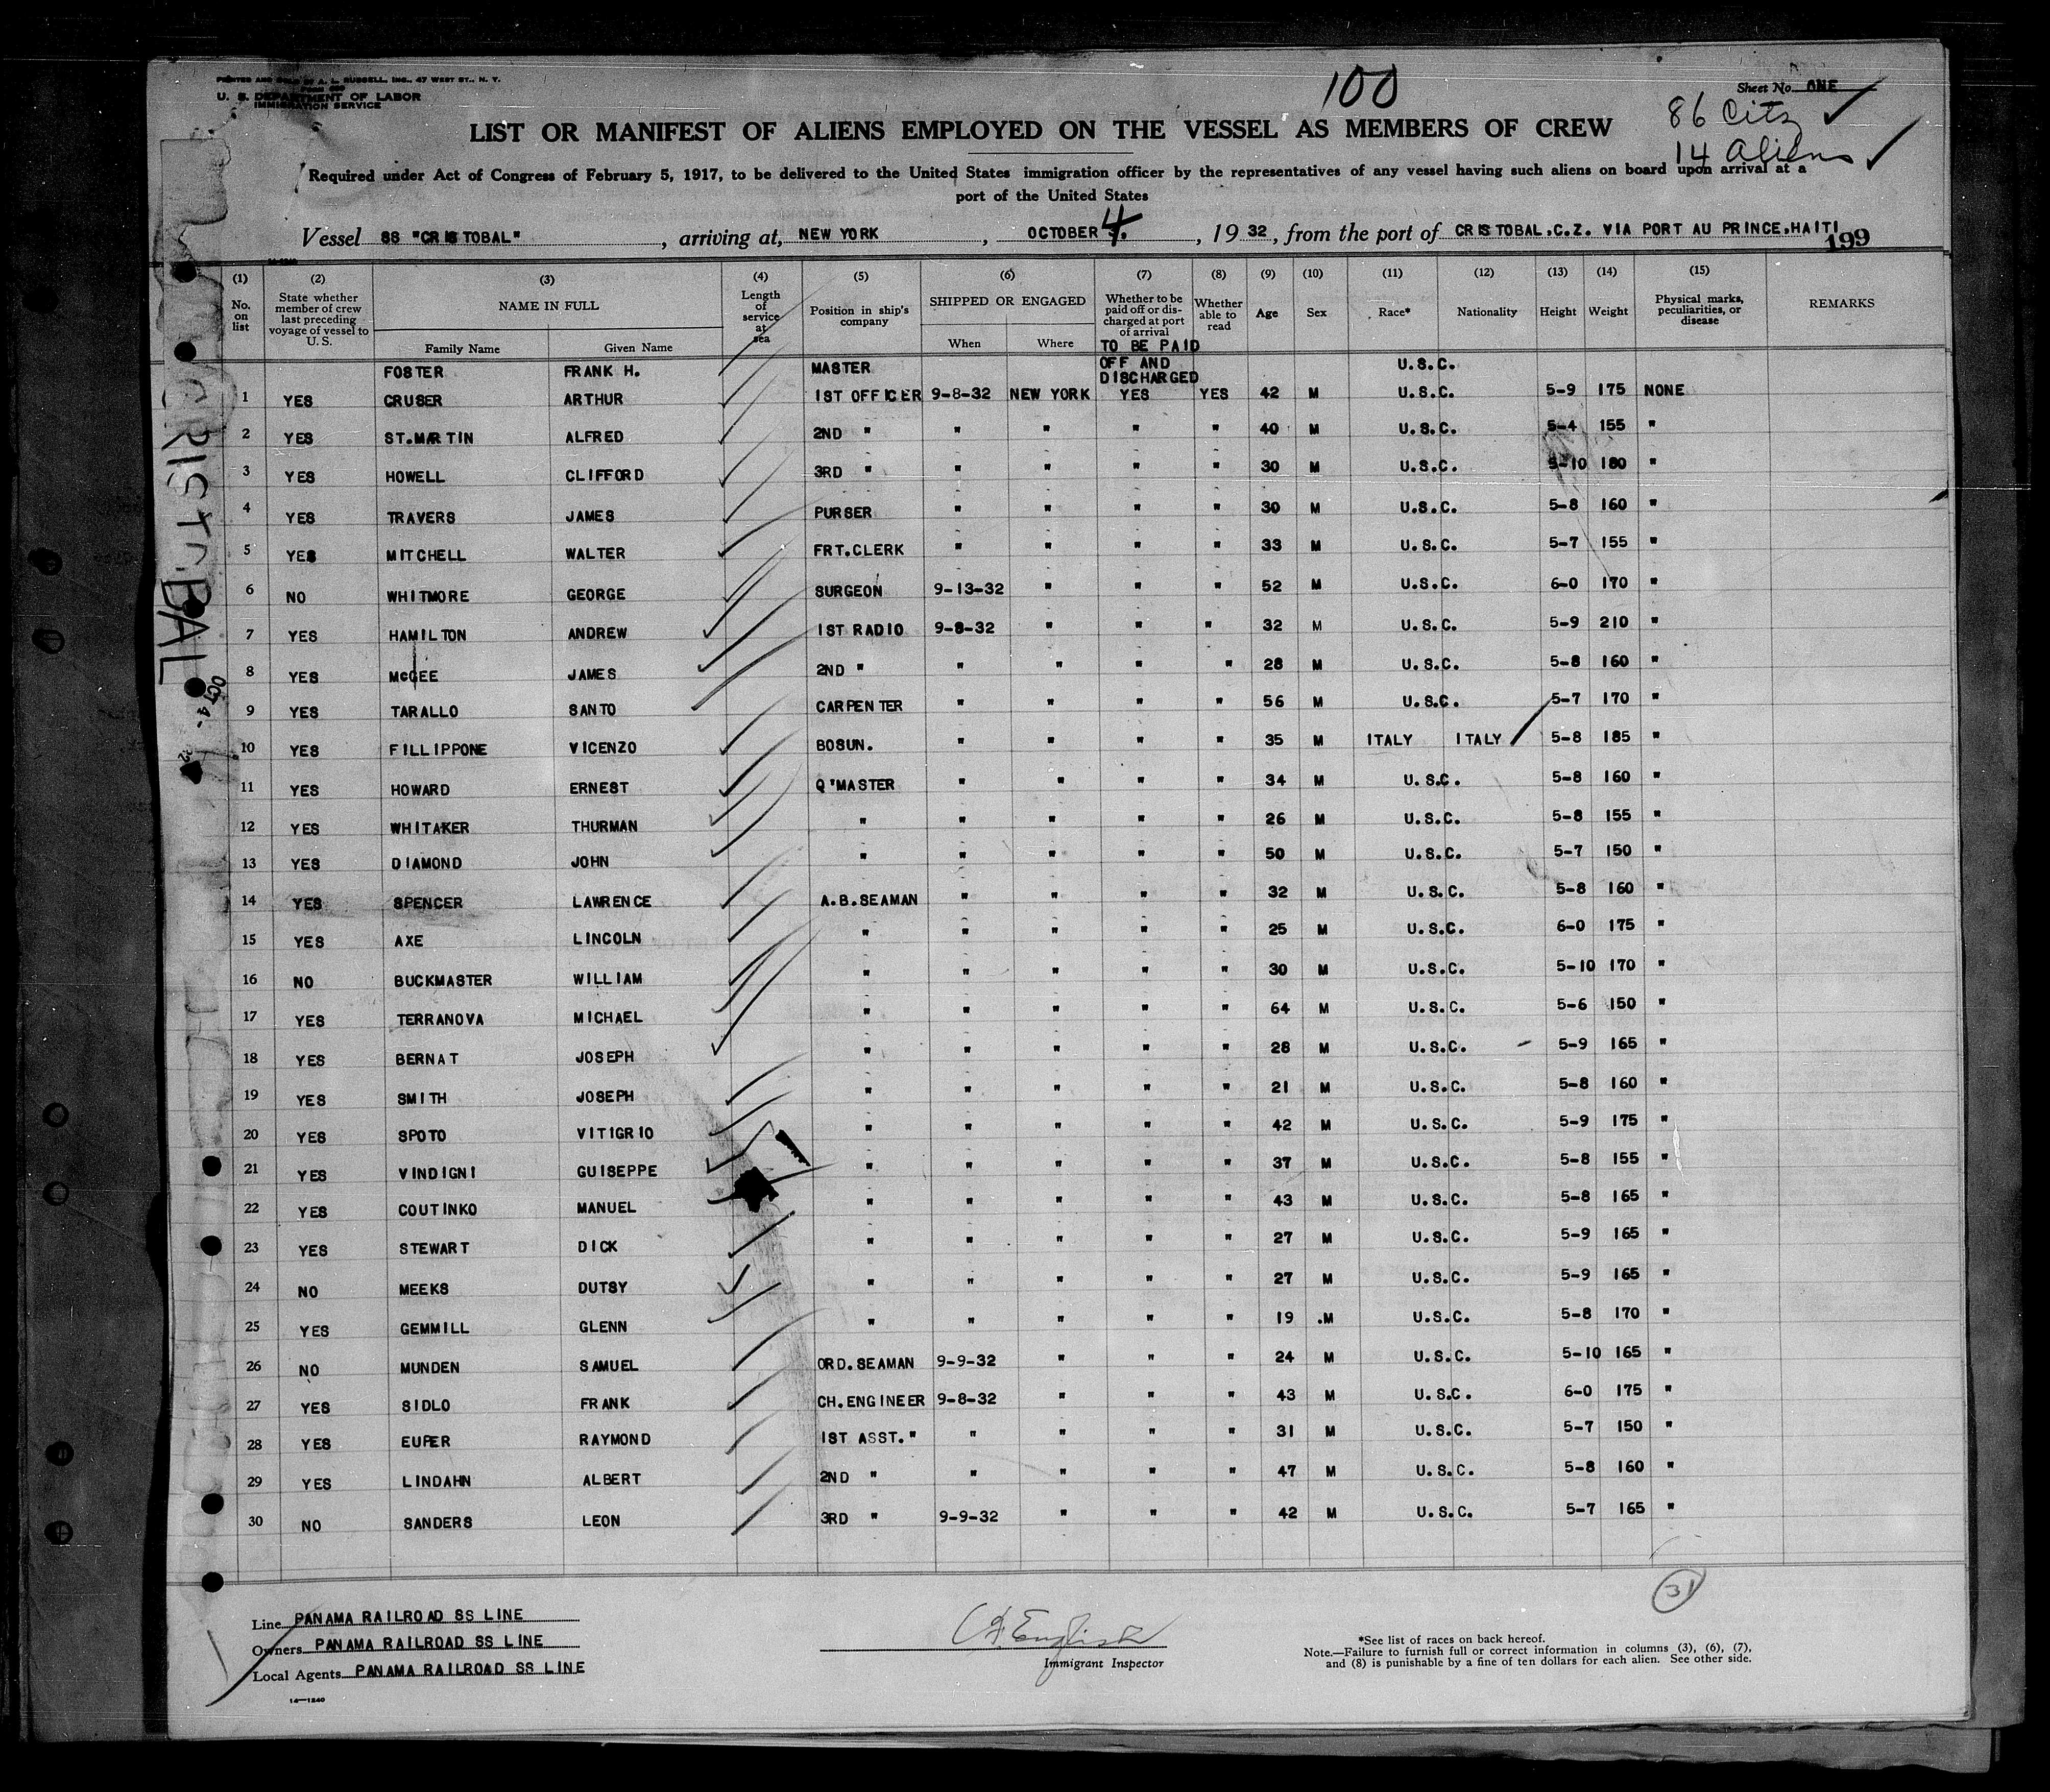 PRINTED AND SOLD BY A. L. RUSSELL, INC., 47 WEST ST., N. Y.
U. S. DEPARTMENT OF LABOR
IMMIGRATION SERVICE
100
Sheet No. ONE
86 Citz
14 Aliens
LIST OR MANIFEST OF ALIENS EMPLOYED ON THE VESSEL AS MEMBERS OF CREW
Required under Act of Congress of February 5, 1917, to be delivered to the United States immigration officer by the representatives of any vessel having such aliens on board upon arrival at a
port of the United States
Vessel SS "CRISTOBAL", arriving at, NEW YORK, OCTOBER 4, 1932, from the port of CRISTOBAL.C.Z. VIA PORT AU PRINCE.HAITI
199
(1) (2) (3) (4) (5) (6) (7) (8) (9) (10) (11) (12) (13) (14) (15)
No. on list
State whether member of crew last preceding voyage of vessel to U. S.
NAME IN FULL
Family Name Given Name
Length of service at sea
Position in ship's company
SHIPPED OR ENGAGED
When Where
Whether to be paid off or discharged at port of arrival
Whether able to read
Age
Sex
Race*
Nationality
Height
Weight
Physical marks, peculiarities, or disease
REMARKS
TO BE PAID OFF AND DISCHARGED
FOSTER FRANK H. MASTER U.S.C.
1 YES CRUSER ARTHUR 1ST OFFICER 9-8-32 NEW YORK YES YES 42 M U.S.C. 5-9 175 NONE
2 YES ST.MARTIN ALFRED 2ND " " " " " 40 M U.S.C. 5-4 155 "
3 YES HOWELL CLIFFORD 3RD " " " " " 30 M U.S.C. 5-10 180 "
4 YES TRAVERS JAMES PURSER " " " " 30 M U.S.C. 5-8 160 "
5 YES MITCHELL WALTER FRT.CLERK " " " " 33 M U.S.C. 5-7 155 "
6 NO WHITMORE GEORGE SURGEON 9-13-32 " " " 52 M U.S.C. 6-0 170 "
7 YES HAMILTON ANDREW 1ST RADIO 9-8-32 " " " 32 M U.S.C. 5-9 210 "
8 YES McGEE JAMES 2ND " " " " " 28 M U.S.C. 5-8 160 "
9 YES TARALLO SANTO CARPENTER " " " " 56 M U.S.C. 5-7 170 "
10 YES FILLIPPONE VICENZO BOSUN. " " " " 35 M ITALY ITALY 5-8 185 "
11 YES HOWARD ERNEST Q'MASTER " " " " 34 M U.S.C. 5-8 160 "
12 YES WHITAKER THURMAN " " " " " 26 M U.S.C. 5-8 155 "
13 YES DIAMOND JOHN " " " " " 50 M U.S.C. 5-7 150 "
14 YES SPENCER LAWRENCE A.B.SEAMAN " " " " 32 M U.S.C. 5-8 160 "
15 YES AXE LINCOLN " " " " " 25 M U.S.C. 6-0 175 "
16 NO BUCKMASTER WILLIAM " " " " " 30 M U.S.C. 5-10 170 "
17 YES TERRANOVA MICHAEL " " " " " 64 M U.S.C. 5-6 150 "
18 YES BERNAT JOSEPH " " " " " 28 M U.S.C. 5-9 165 "
19 YES SMITH JOSEPH " " " " " 21 M U.S.C. 5-8 160 "
20 YES SPOTO VITIGRIO " " " " " 42 M U.S.C. 5-9 175 "
21 YES VINDIGNI GUISEPPE " " " " " 37 M U.S.C. 5-8 155 "
22 YES COUTINKO MANUEL " " " " " 43 M U.S.C. 5-8 165 "
23 YES STEWART DICK " " " " " 27 M U.S.C. 5-9 165 "
24 NO MEEKS DUTSY " " " " " 27 M U.S.C. 5-9 165 "
25 YES GEMMILL GLENN " " " " " 19 .M U.S.C. 5-8 170 "
26 NO MUNDEN SAMUEL ORD.SEAMAN 9-9-32 " " " 24 M U.S.C. 5-10 165 "
27 YES SIDLO FRANK CH.ENGINEER 9-8-32 " " " 43 M U.S.C. 6-0 175 "
28 YES EUPER RAYMOND 1ST ASST." " " " " 31 M U.S.C. 5-7 150 "
29 YES LINDAHN ALBERT 2ND " " " " " 47 M U.S.C. 5-8 160 "
30 NO SANDERS LEON 3RD " 9-9-32 " " " 42 M U.S.C. 5-7 165 "
31
CRISTOBAL
OCT 4-
Line PANAMA RAILROAD SS LINE
Owners PANAMA RAILROAD SS LINE
Local Agents PANAMA RAILROAD SS LINE
14—1240
English
Immigrant Inspector
*See list of races on back hereof.
Note.—Failure to furnish full or correct information in columns (3), (6), (7),
and (8) is punishable by a fine of ten dollars for each alien. See other side.